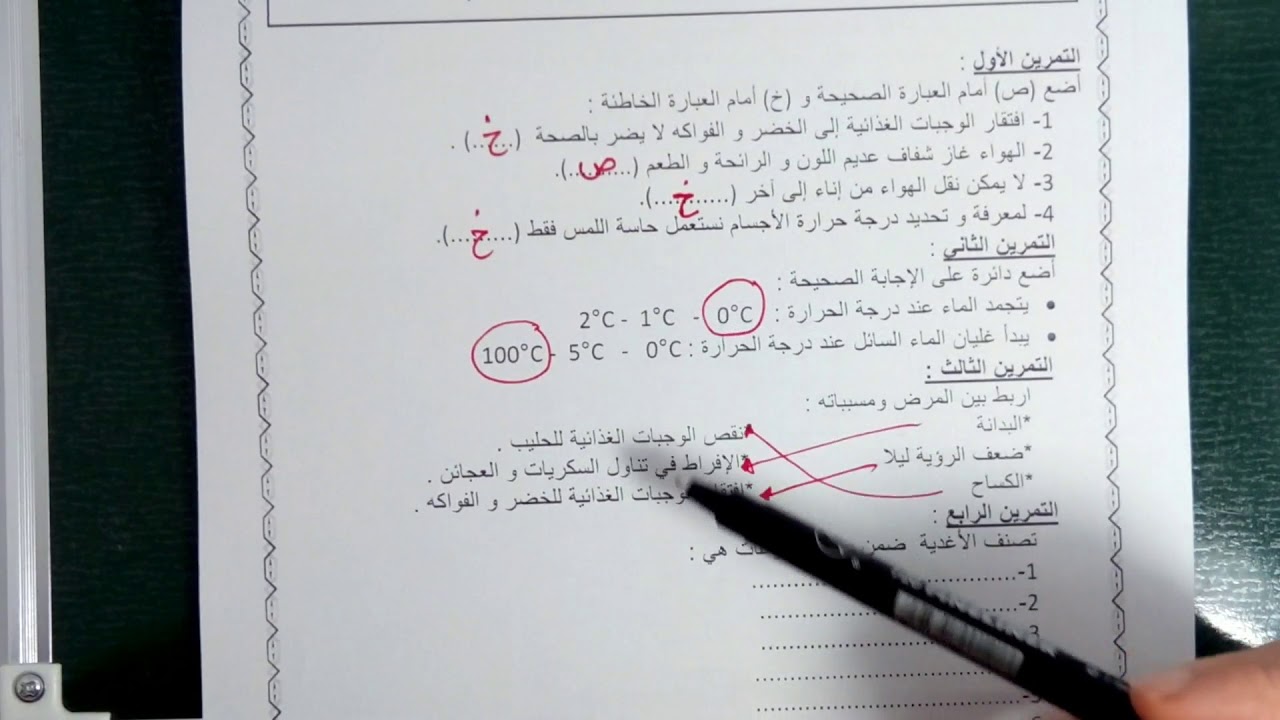 التمرين الأول :
أضع (ص) أمام العبارة الصحيحة و (خ) أمام العبارة الخاطئة :
1- افتقار الوجبات الغذائية إلى الخضر و الفواكه لا يضر بالصحة (..خ...) .
2- الهواء غاز شفاف عديم اللون و الرائحة و الطعم (....ص....).
3- لا يمكن نقل الهواء من إناء إلى آخر (......خ....).
4- لمعرفة و تحديد درجة حرارة الأجسام نستعمل حاسة اللمس فقط (....خ....).
التمرين الثاني :
أضع دائرة على الإجابة الصحيحة :
• يتجمد الماء عند درجة الحرارة : 0°C - 1°C - 2°C
• يبدأ غليان الماء السائل عند درجة الحرارة : 0°C - 5°C - 100°C
التمرين الثالث :
اربط بين المرض ومسبباته :
*البدانة *نقص الوجبات الغذائية للحليب .
*ضعف الرؤية ليلا *الإفراط في تناول السكريات و العجائن .
*الكساح الوجبات الغذائية للخضر و الفواكه .
التمرين الرابع :
تصنف الأغدية ضمن هي :
1-..............................
2-..............................
3..............................